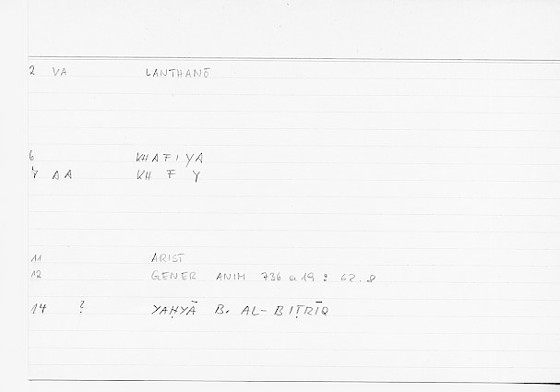 2 VA LANTHANŌ
6 KHAFIYA
7 AA KH F Y
11 ARIST
12 GENER ANIM 736 a 19 : 62.8
14 ? YAḤYĀ B. AL-BIṬRĪQ